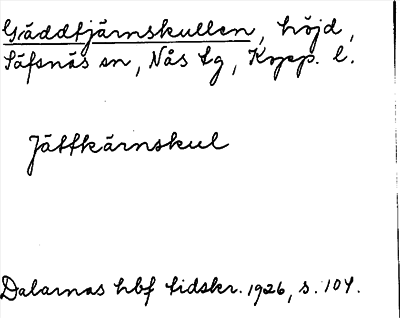 Gäddtjärnskullen, höjd,
Säfsnäs sn, Nås tg, Kopp. l.
Jättkärnskul
Dalarnas hbf tidskr. 1926, s. 104.